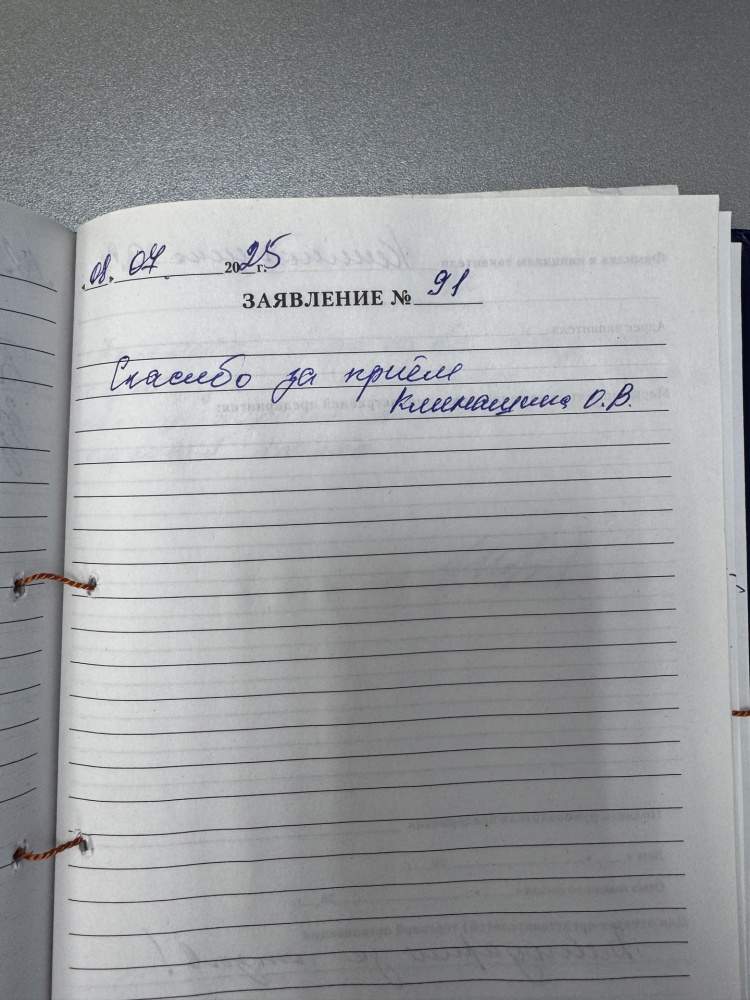 08. 07 2025 г.
ЗАЯВЛЕНИЕ № 91
Спасибо за приём
Клинащина О.В.